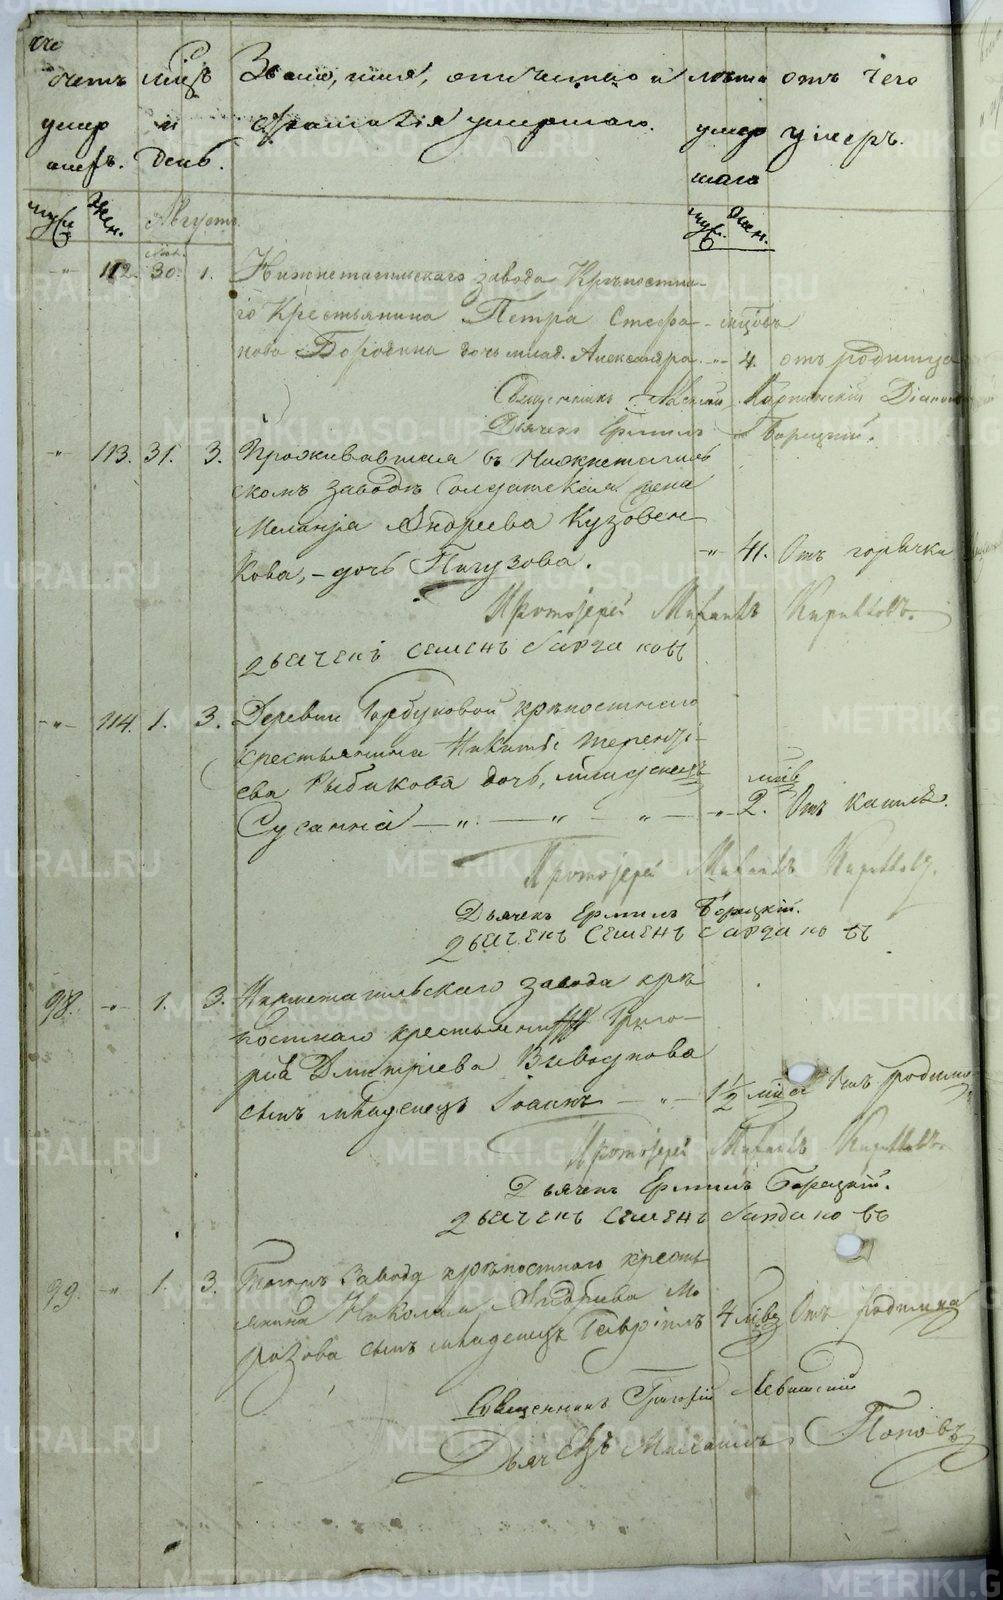 Счетъ умер шихъ.
Мцъ и День.
Званіе, имя, отчество и
Фамилія умершаго.
лѣта умер шаго
отъ чего умеръ.
муж. Жен.
Августъ.
муж. жен.
" 112. 30. 1. Нижнетагильскаго завода Крѣпостна-
го Крестьянина Петра Стефа- мцовъ
нова Бородина дочь млад. Александра " 4. отъ родимца
Священникъ Діакон
Дьячекъ Ермилъ Борецкій.
" 113. 31. 3. Проживавшая въ Нижнетагиль
скомъ заводѣ Солдатская жена
Меланія Андреева Кузовен-
кова, - дочь Пигузова. " 41. Отъ горячки
Протоіерей Михаилъ Кирилловъ.
дьячекъ Семенъ Сарда ковъ
" 114. 1. 3. Деревни Горбуновой крѣпостнаго
крестьянина Никиты Терентi-
ева Рыбакова дочь, младенецъ мцв
Сусаннія — " — " — " — " 2. Отъ кашля.
Протоіерей Михаилъ Кирилловъ.
Дьячекъ Ермилъ Борецкій.
дьячекъ Семенъ Сарда ко въ
98. " 1. 3. Нижнетагильскаго завода крѣ
постнаго крестьянина Григо-
рія Дмитріева
сынъ младенецъ Іоаннъ — " — 1 1/2 мца Отъ родимца
Протоіерей Михаилъ Кирилловъ.
Дьячекъ Ермилъ Борецкій.
дьячекъ Семенъ Сарда ко въ
99. " 1. 3. Тогожъ завода крѣпостнаго кресть
янина Николая Андреева Мо
розова сынъ младенецъ Гавріилъ 4 мцв Отъ родимца
Священникъ Григорій Левитскій
Дьячекъ Михаилъ Поповъ
METRIKI.GASO-URAL.RU